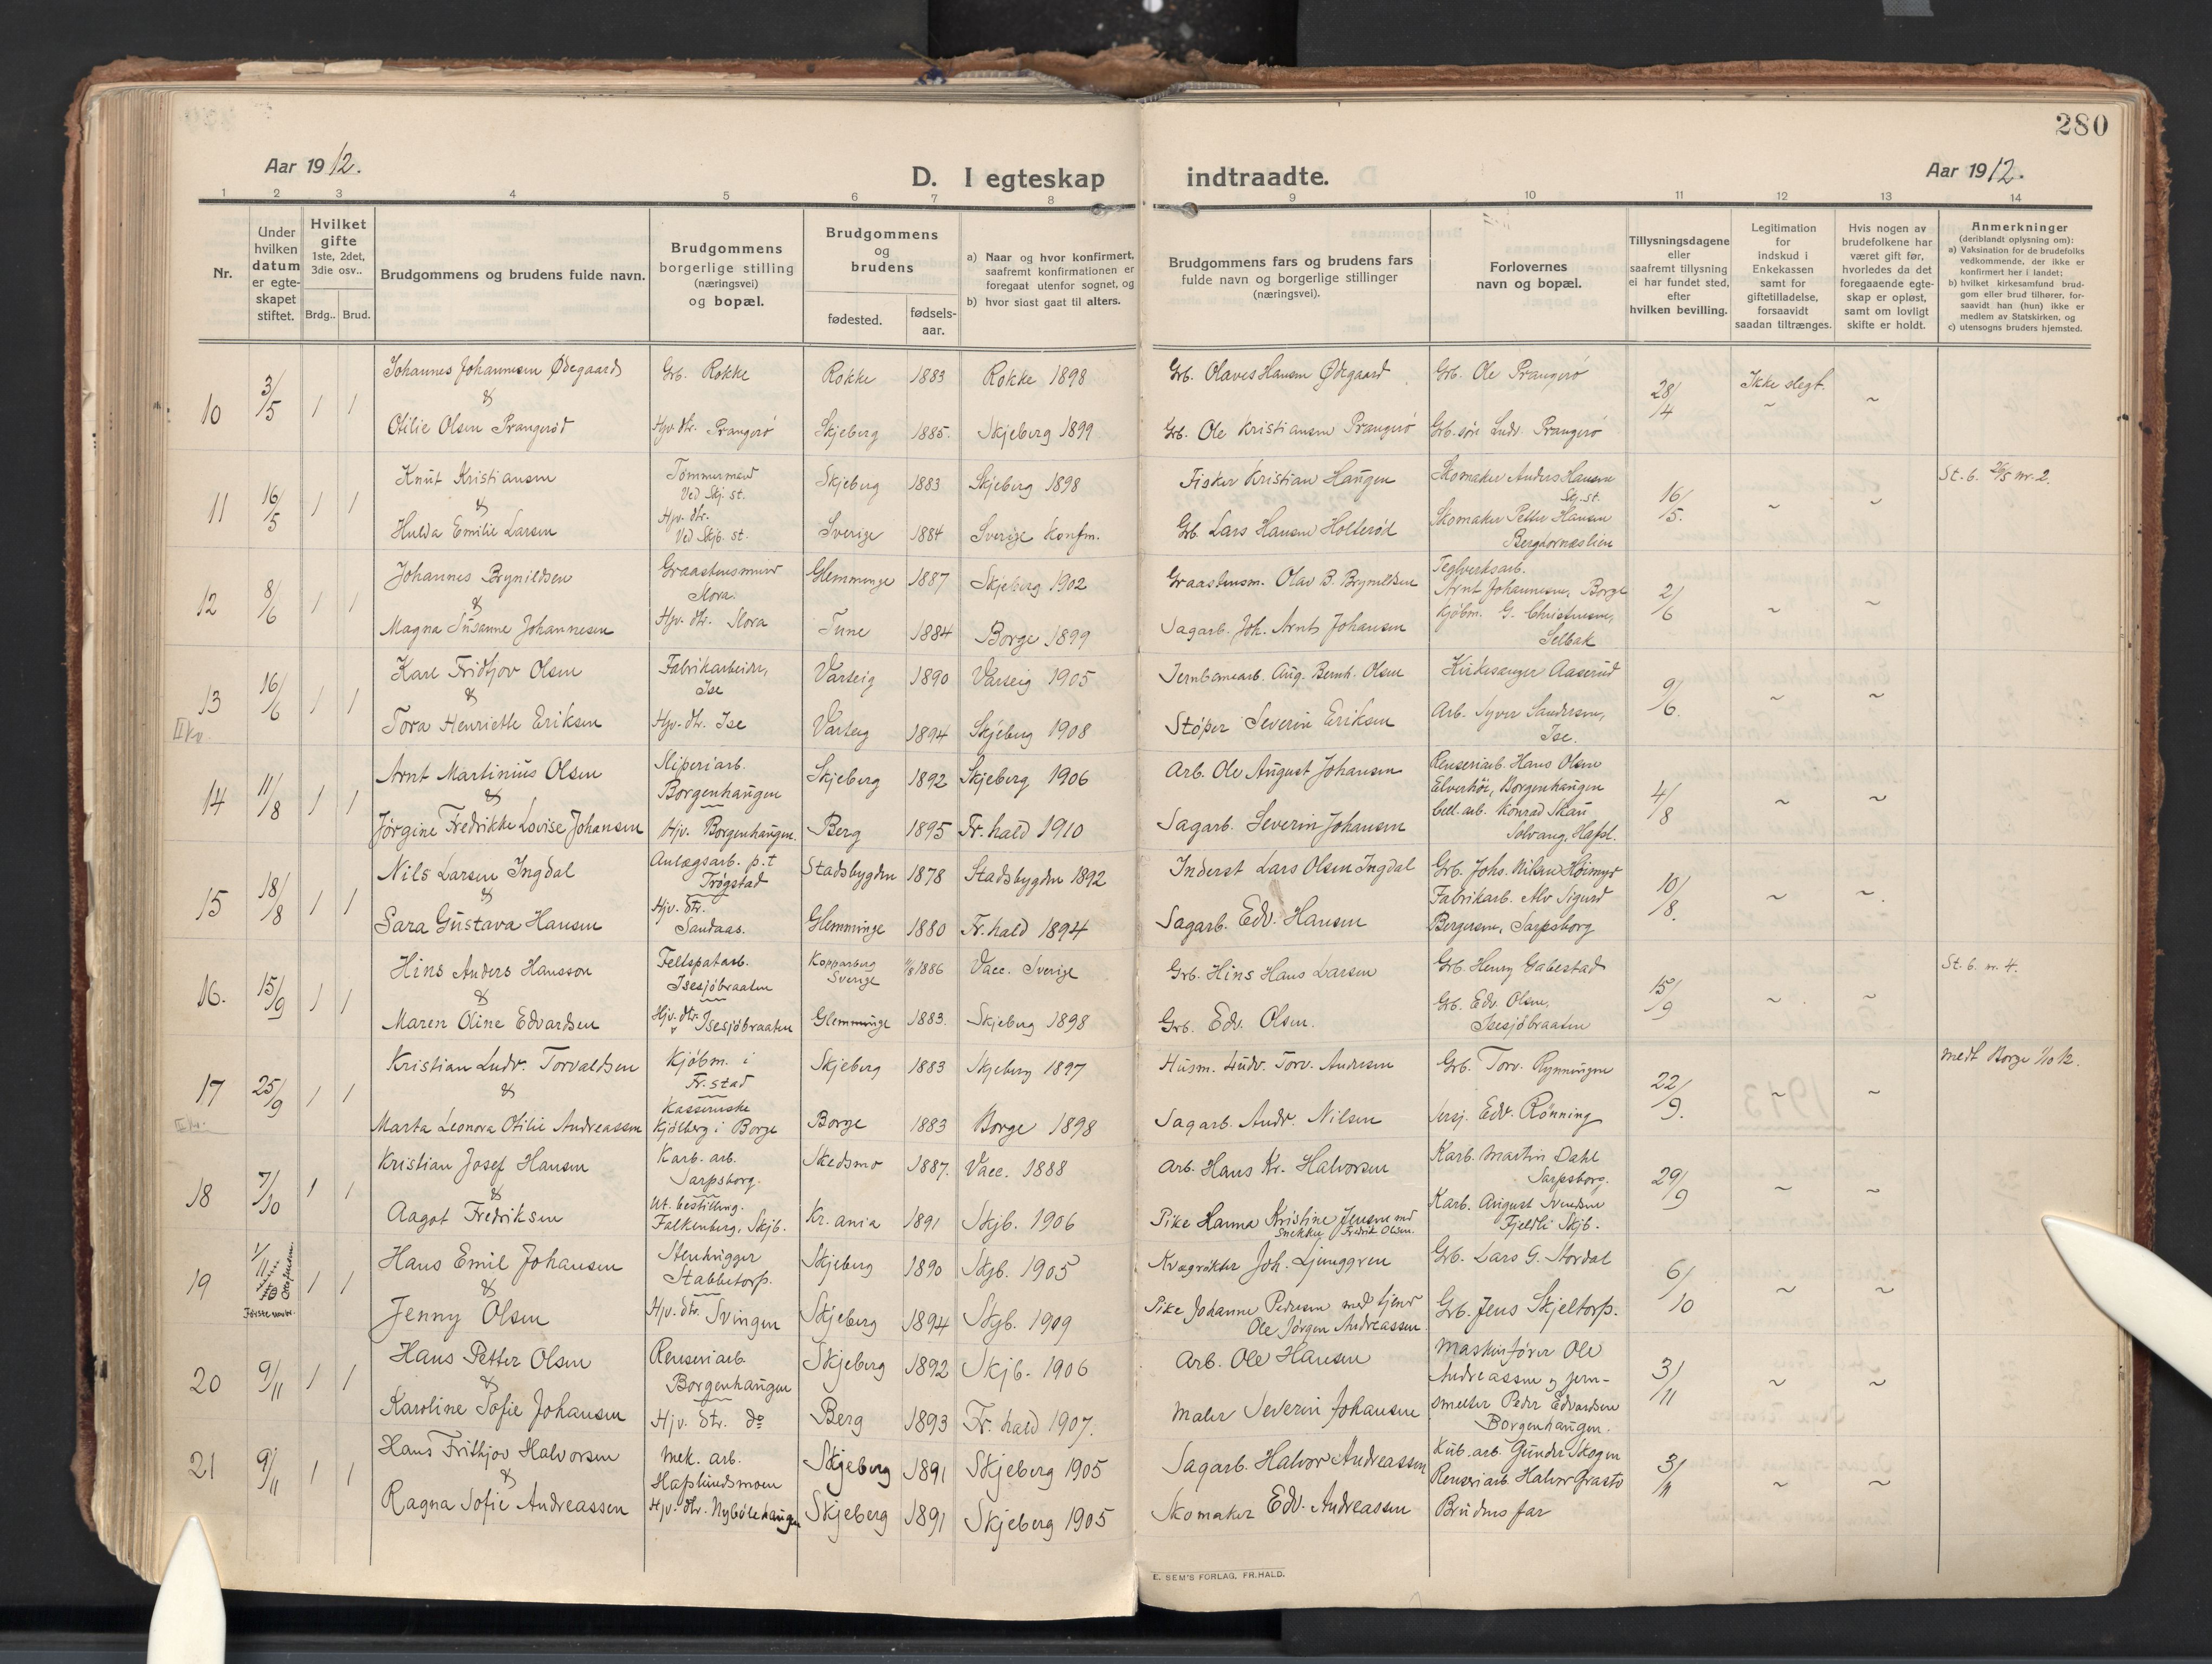 280
Aar 1912.
D. I egteskap indtraadte.
Aar 1912.
1 2 3 4 5 6 7 8 9 10 11 12 13 14
Nr.
Under hvilken datum er egte-skapet stiftet.
Hvilket gifte 1ste, 2det, 3die osv..
Brdg.. Brud.
Brudgommens og brudens fulde navn.
Brudgommens borgerlige stilling (næringsvei) og bopæl.
Brudgommens og brudens
fødested.
fødsels-aar.
a) Naar og hvor konfirmert, saafremt konfirmationen er foregaat utenfor sognet, og
b) hvor sidst gaat til alters.
Brudgommens fars og brudens fars fulde navn og borgerlige stillinger (næringsvei).
Forlovernes navn og bopæl.
Tillysningsdagene eller saafremt tillysning ei har fundet sted, efter hvilken bevilling.
Legitimation for indskud i Enkekassen samt for giftetilladelse, forsaavidt saadan tiltrænges.
Hvis nogen av brudefolkene har været gift før, hvorledes da det foregaaende egte-skap er opløst, samt om lovligt skifte er holdt.
Anmerkninger (deriblandt oplysning om):
a) Vaksination for de brudefolks vedkommende, der ikke er konfirmert her i landet;
b) hvilket kirkesamfund brud-gom eller brud tilhører, for-saavidt han (hun) ikke er medlem av Statskirken, og
c) utensogns bruders hjemsted.
10 3/5 1 1
Johannes Johannesen Ødegaard Grb. Rokke Rokke 1883 Rokke 1898 Grb. Olaves Hansen Ødegaard Grb. Ole Prangerö 28/4 Ikke slegt. ~
&
Otilie Olsen Prangerød Hjv. dtr. Prangerö Skjeberg 1885. Skjeberg 1899 Grb. Ole Kristiansen Prangerö Grb. søn Ludv. Prangerö
11 16/5 1 1
Knut Kristiansen Tømmermand Ved Skj. st. Skjeberg 1883 Skjeberg 1898 Fisker Kristian Haugen Skomaker Anders Hansen Skj. st. 16/5. ~ ~ St. 6. 26/5 nr. 2.
&
Hulda Emilie Larsen Hjv. dtr. Ved Skjb. st. Sverige 1884 Sverige konfm. Grb. Lars Hansen Holterød Skomaker Petter Hansen
12 8/6 1 1
Johannes Brynildsen Skjeberg 1902 Glemminge 1887 Graastensm. Olav B. Brynildsen Teglverksarb. Arnt Johannesen, Borge 2/6 ~ ~
&
Magna Susanne Johannesen Hjv. dtr. Tune 1884 Borge 1899 Sagarb. Joh. Arnt Johansen Kjøbm. G. Christensen, Selbak
13 16/6 1 1
Karl Fridtjov Olsen Fabrikarbeider, Ise Varteig 1890 Varteig 1905 Jernbanearb. Aug. Bernh. Olsen Kirkesanger Aaserud 9/6. ~ ~
&
Tora Henriette Eriksen Hjv. dtr. Ise Varteig 1894 Skjeberg 1908 Støper Severin Eriksen Arb. Syver Sandersen, Ise.
14 11/8 1 1
Arnt Martinius Olsen Sliperiarb. Borgenhaugen Skjeberg 1892 Skjeberg 1906 Arb. Ole August Johansen Renseriarb. Hans Olsen Elverhöi, Borgenhaugen 4/8 ~ ~
&
Jørgine Fredrikke Lovise Johansen Hjv. Borgenhaugen. Berg 1895 Fr. hald 1910 Sagarb. Severin Johansen Cell. arb. Konrad Skau Solvang, Hafsl.
15 18/8 1 1
Nils Larsen Ingdal Anlægsarb. p. t Trøgstad Stadsbygden 1878 Stadsbygden 1892 Inderst Lars Olsen Ingdal Grb. Johs. Nilsen Höimyr 10/8. ~ ~.
&
Sara Gustava Hansen Hjv. dtr. Sandaas. Glemminge 1880 Fr. hald 1894 Sagarb. Edv. Hansen Fabrikarb. Alv Sigurd Bergersen, Sarpsborg
16. 15/9 1 1
Hins Anders Hansson Feltspatarb. Isesjöbraaten Kopparberg Sverige 1886 Vacc. Sverige Grb. Hins Hans Larsen Grb. Henry Gabestad 15/9 ~ ~ St. 6. n. 4.
&
Maren Oline Edvardsen Hjv. dtr. Isesjöbraaten Glemminge 1883. Skjeberg 1898 Grb. Edv. Olsen. Grb. Edv. Olsen, Isesjöbraaten
17 25/9 1 1
Kristian Ludv. Torvaldsen Kjøbm. i Fr. stad Skjeberg 1883 Skjeberg 1897 Husm. Ludv. Torv. Andersen Grb. Torv. Rynningen 22/9. ~ ~ medt Borge 1/10 12.
&
Marta Leonora Otilie Andreassen Kjölberg i Borge Borge 1883 Borge 1898 Sagarb. Andr. Nilsen Sersj. Edv. Rønning
18 7/10 1 1
Kristian Josef Hansen Karb. arb. Sarpsborg. Skedsmo 1887. Vacc. 1888 Arb. Hans Kr. Halvorsen Karb. Martin Dahl Sarpsborg. 29/9 ~ ~
&
Aagot Fredriksen Ut. bestilling. Falkenberg, Skjb. Kr. ania 1891 Skjb. 1906 Pike Hanna Kristine Jensen med Snekker Fredrik Olsen. Karb. August Svendsen Fjeldli Skjb.
19 1/11 1 1
Første novbr.
Hans Emil Johansen Stenhugger Stabbetorp. Skjeberg 1890 Skjb. 1905 Kvægrøkter Joh. Ljunggren Grb. Lars G. Stordal 6/10 ~ ~
&
Jenny Olsen Hjv. dtr. Svingen Skjeberg 1894 Skjb. 1909 Pike Johanne Pedersen med tjener Ole Jørgen Andreassen. Grb. Jens Skjeltorp.
20 9/11 1 1
Hans Petter Olsen Renseriarb. Borgenhaugen Skjeberg 1892 Skjb. 1906 Arb. Ole Hansen Maskinfører Ole Andreassen og jern- 3/11 ~ ~
&
Karoline Sofie Johansen Hjv. dtr. do Berg 1893 Fr. hald 1907. Maler Severin Johansen smelter Peder Edvardsen Borgenhaugen.
21 9/11 1 1
Hans Frithjov Halvorsen Mek. arb. Hafslundsmoen Skjeberg 1891 Skjeberg 1905 Sagarb. Halvor Andreassen Kub. arb. Gunder Skogen Renseriarb. Halvor Grasto 3/11 ~ ~
&
Ragna Sofie Andreassen Hjv. dtr. Nybölehaugen Skjeberg 1891 Skjeberg 1905 Skomaker Edv. Andreassen Brudens far
E. SEM'S FORLAG, FR.HALD.